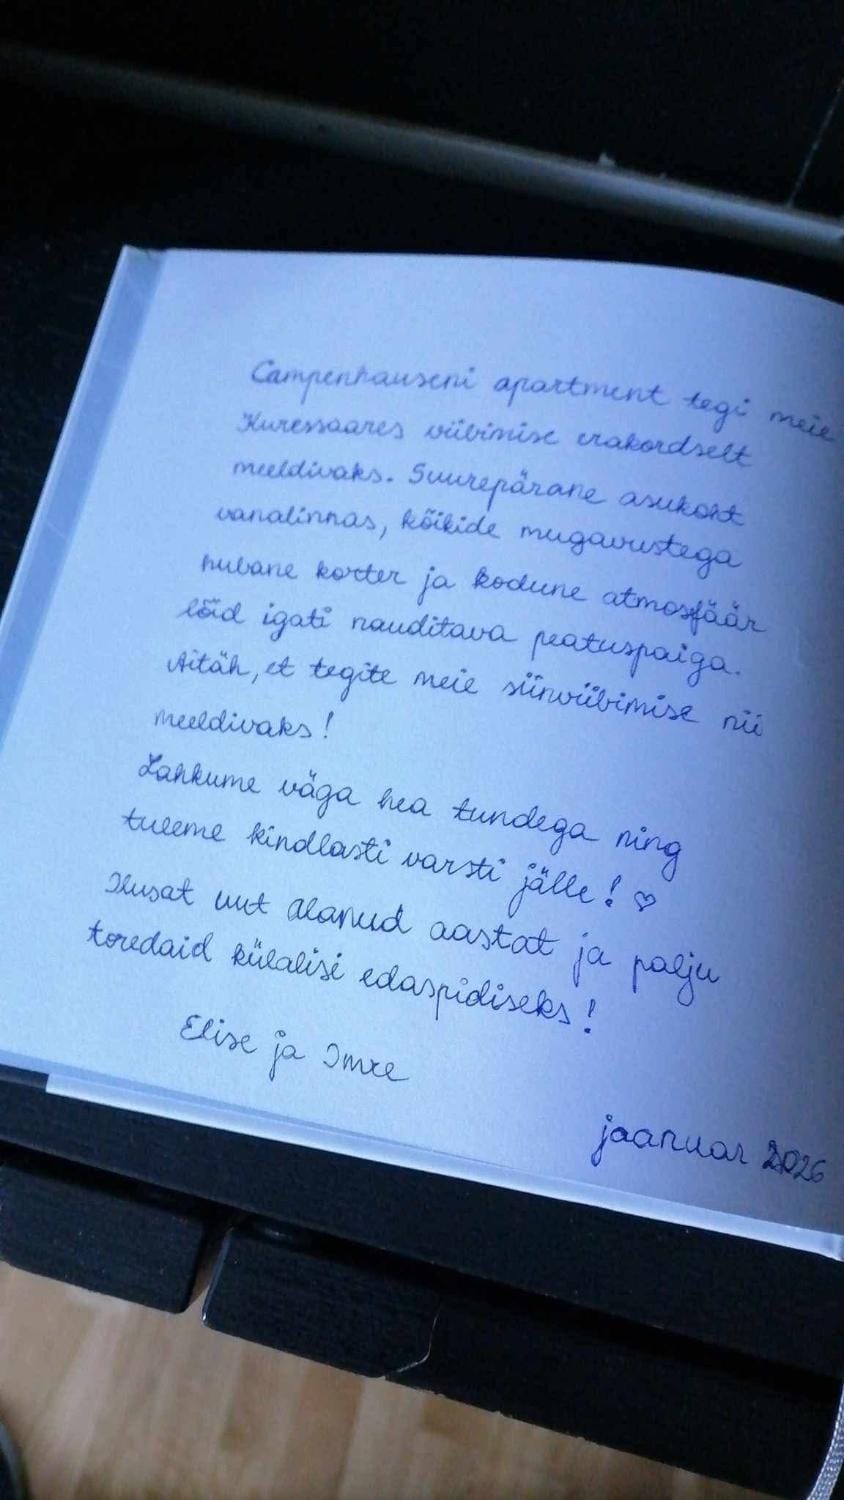 Campenhauseni apartment tegi meie
Kuressaares viibimise erakordselt
meeldivaks. Suurepärane asukoht
vanalinnas, kõikide mugavustega
hubane korter ja kodune atmosfäär
lõid igati nauditava peatuspaiga.
Aitäh, et tegite meie siinviibimise nii
meeldivaks!
Lahkume väga hea tundega ning
tuleme kindlasti varsti jälle! ♡
Ilusat uut alanud aastat ja palju
toredaid külalisi edaspidiseks!
Elise ja Imre
jaanuar 2026